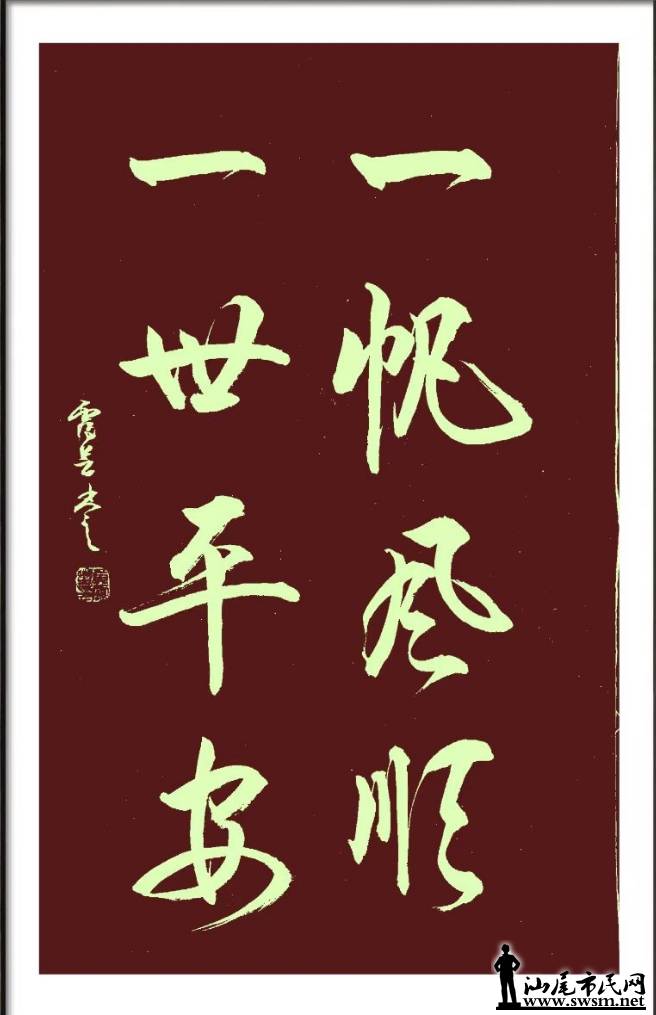 一帆风顺
一世平安
汕尾市民网
www.swsm.net